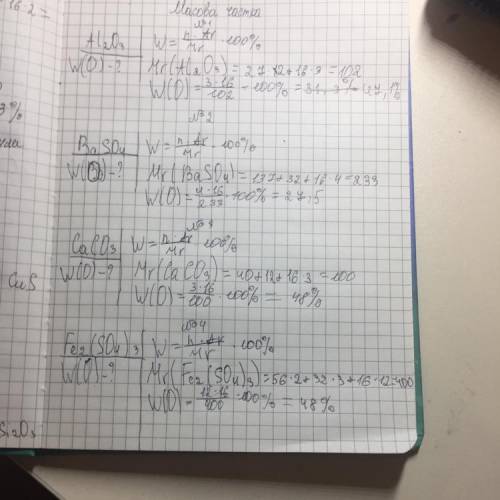 16·2=
3%
CuS
Si₂O₃
Масова частка
№1
Al₂O₃ W = n·Ar/Mr · 100%
W(O)-? Mr(Al₂O₃) = 27·2+16·3=102
W(O) = 3·16/102 · 100% =
№2
BaSO₄ W = n·Ar/Mr · 100%
W(O)-? Mr(BaSO₄) = 137+32+16·4=233
W(O) = 4·16/233 · 100% = 27,5
CaCO₃ W = n·Ar/Mr · 100%
W(O)-? Mr(CaCO₃) = 40+12+16·3=100
W(O) = 3·16/100 · 100% = 48%
№4
Fe₂(SO₄)₃ W = n·Ar/Mr · 100%
W(O)-? Mr(Fe₂(SO₄)₃) = 56·2+32·3+16·12=400
W(O) = 12·16/400 · 100% = 48%